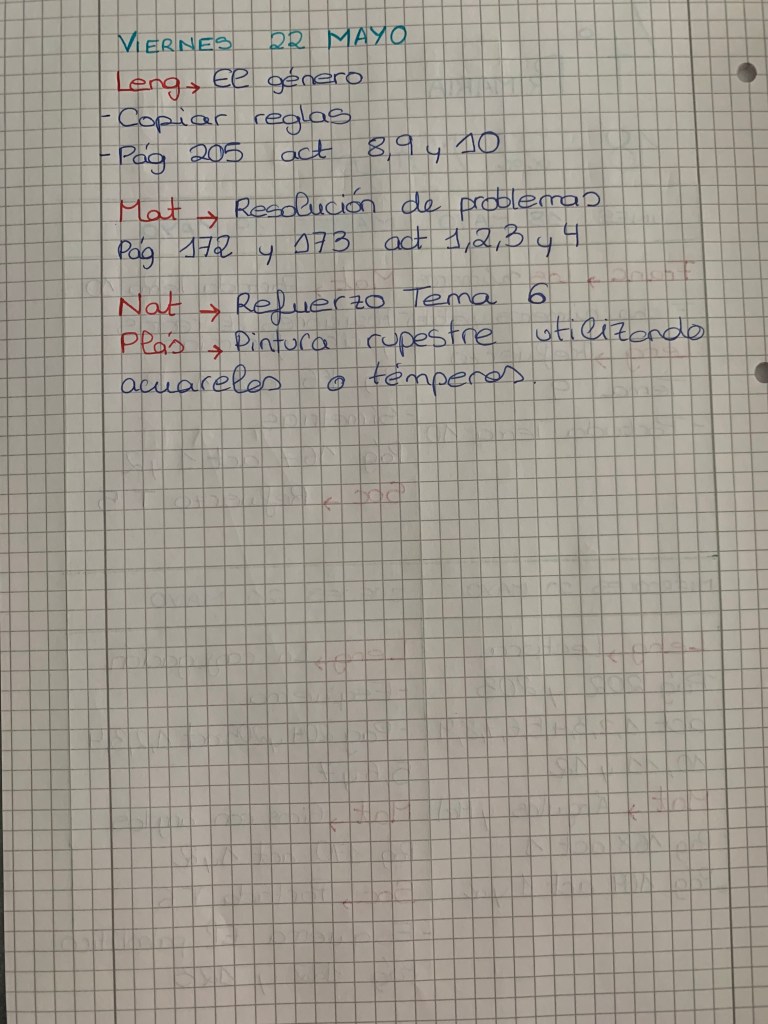 VIERNES 22 MAYO
Leng → El género
- Copiar reglas
- Pág 205 act 8,9 y 10
Mat → Resolución de problemas
Pág 172 y 173 act 1,2,3 y 4
Nat → Refuerzo Tema 6
Plás → Pintura rupestre utilizando
acuarelas o témperas.